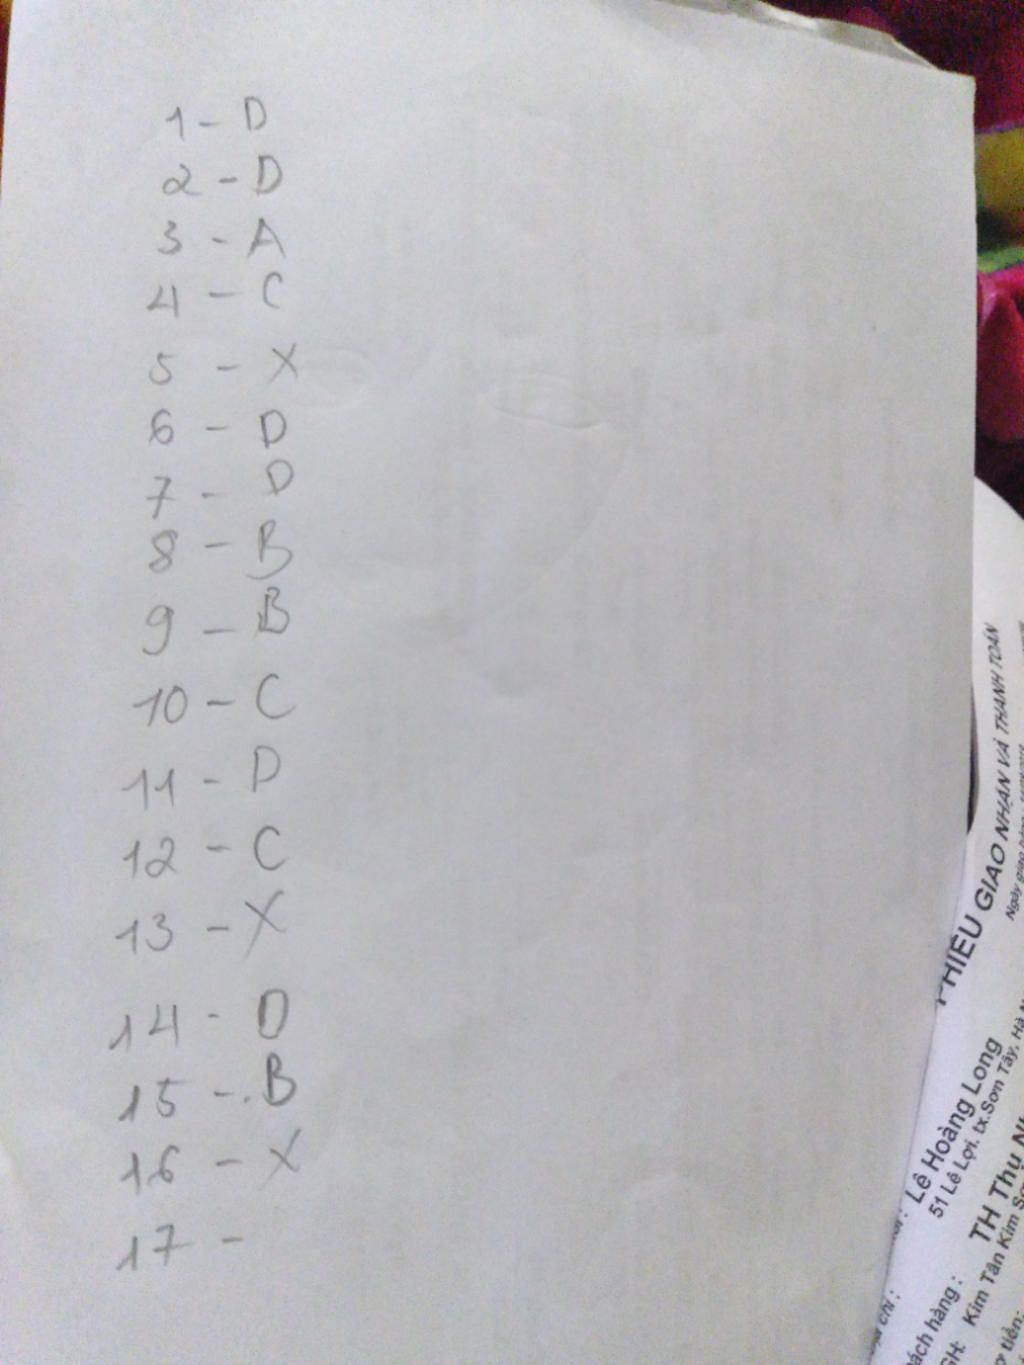 1 - D
2 - D
3 - A
4 - C
5 - X
6 - D
7 - D
8 - B
9 - B
10 - C
11 - D
12 - C
13 - X
14 - D
15 - B
16 - X
17 -
PHIẾU GIAO NHẬN VÀ THANH TOÁN
Ngày giao hàng:
Lê Hoàng Long
51 Lê Lợi, tx.Sơn Tây, Hà
TH Thụ
ách hàng :
Kim Tân Kim